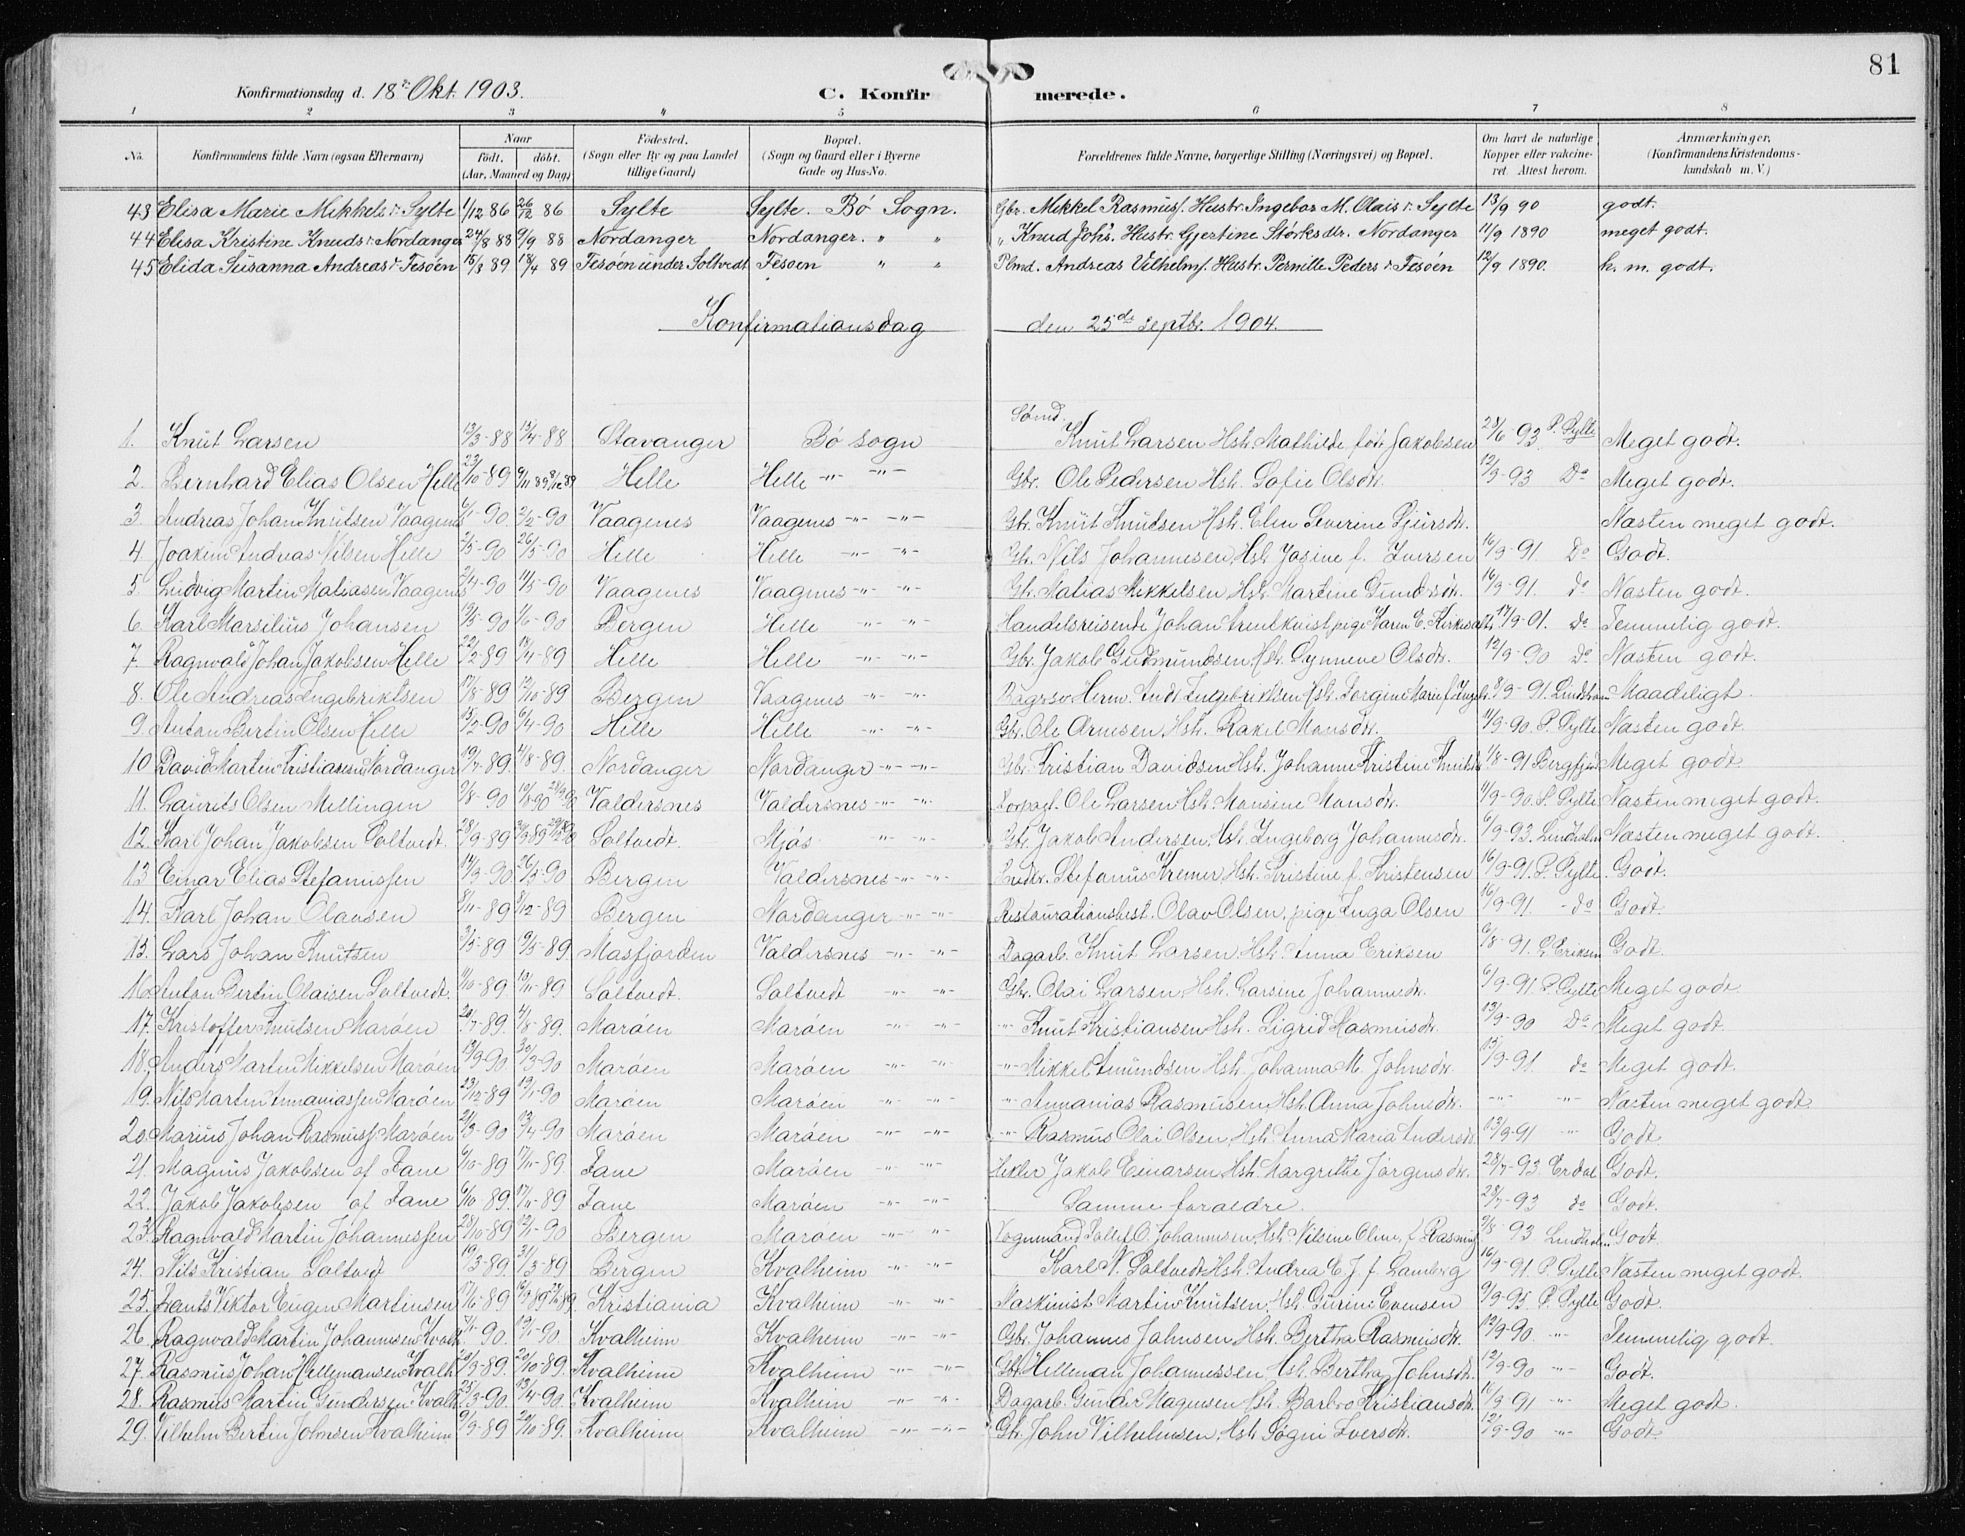 81
Konfirmationsdag d. 18de Okt. 1903. C. Konfirmerede.
1 2 3 4 5 6 7 8
No. Konfirmandens fulde Navn (ogsaa Efternavn) Naar født. døbt. (Aar, Maaned og Dag) Fødested. (Sogn eller By og paa Landet tillige Gaard) Bopæl. (Sogn og Gaard eller i Byerne Gade og Hus-No. Forældrenes fulde Navne, borgerlige Stilling (Næringsvei) og Bopæl. Om havt de naturlige Kopper eller vakcineret. Attest herom. Anmærkninger, (Konfirmandens Kristendomskundskab m. V.)
43 Elisa Marie Mikkelsdr Sylte 1/12 86 26/12 86 Sylte Sylte. Bø Sogn. Gbr. Mikkel Rasmuss. Hustr. Ingebor M. Olaisdr Sylte 13/9 90 godt.
44 Elisa Kristine Knudsdr Nordanger 24/8 88 9/9 88 Nordanger Nordanger. " " " Knud Johs. Hustr. Gjertine Størksdr. Nordanger 11/9 1890 meget godt.
45 Elida Susanna Andreasdr Fesøen 15/3 89 18/4 89 Fesøen under Soltvedt Fesøen " " Plmd. Andreas Vilhelms. Hustr. Pernille Pedersdr Fesøen 12/9 1890. h. m. godt.
Konfirmationsdag den 25de Septbr. 1904.
1. Knut Larsen 13/3-88 13/4-88 Stavanger Bø Sogn Sømd. Knut Larsen Hst. Mathilde før Jakobsen 28/6 93 P. Sylte Meget godt.
2. Bernhard Elias Olsen Helle 23/10-89 9/11 89 Helle Helle -"- -"- Gbr. Ole Pedersen Hst. Sofie Olsdr. 12/9-93 Do Meget godt.
3. Andreas Johan Knutsen Vaagenes 6/1-90 2/2-90 Vaagenes Vaagenes -"- -"- Gbr. Knut Knutsen Hst. Elen Severine Sjursdr. Næsten meget godt.
4. Joakim Andreas Nilsen Helle 2/5-90 26/5-90 Helle Helle -"- -"- Gbr. Nils Johannesen, Hst. Josine f. Iversen 16/9-91. Do Godt.
5. Ludvig Martin Matiasen Vaagenes 2/4-90 11/5-90 Vaagenes Vaagenes -"- -"- Gbr. Matias Mikkelsen Hst. Martine Gundersdr. 16/9-91. do Næsten godt.
6. Karl Marsilius Johansen 19/5-90 1/6-90 Bergen Helle -"- -"- Handelsreisende Johan pige Karen E. 17/9-01. do Temmelig godt.
7. Ragnvald Johan Jakobsen Helle 22/2-89 14/4-89 Helle Helle -"- -"- Gbr. Jakob Gudmundsen, Hst. Synneve Olsdr. 12/9-90 Do Næsten godt.
8. Ole Andreas Ingebriktsen 17/8-89 13/10-89 Bergen Vaagenes -"- -"- Herm. Andr. Ingebriktsen Hst. Jorgine Marie f. 8/9-91. Lindholm Maadeligt.
9. Anton Bertin Olsen Helle 15/2-90 6/4-90 Helle Helle -"- -"- Gbr. Ole Arnesen, Hst. Rakel Monsdr. 11/9-90. P. Sylte Næsten godt.
10 David Martin Kristiansen Nordanger 19/7-89. 4/8-89. Nordanger Nordanger -"- -"- Gbr. Kristian Davidsen Hst. Johanne Kristine Knutsdr 1/8-91 Meget godt.
11. Laurits Olsen Mellingen 9/8-90 Valdersnes Valdersnes -"- -"- Ole Larsen Hst. Monsine Monsdr. 11/9-90. P. Sylte Næsten meget godt.
12. Karl Johan Jakobsen Soltvedt. 28/9-89 Soltvedt. Mjøs -"- Gbr. Jakob Andersen, Hst. Ingeborg Johannesdr. 6/9-93. Lindholm Næsten meget godt.
13 Einar Elias Stefanussen 14/3-90 26/5-90 Bergen Valdersnes -"- -"- Snedkr. Stefanus Kremer Hst. Kristine f. Kristensen 16/9-91. P. Sylte. Godt.
14. Karl Johan Olausen 8/11-89 8/12-89 Bergen Nordanger -"- -"- Restaurationsbest. Olav Olsen, pige Inga Olsen 16/9-91. - do Godt.
15. Lars Johan Knutsen 3/5-89 9/5-89 Masfjorden Valdersnes -"- -"- Dagarb. Knut Larsen Hst. Anna Eriksen 6/8-91. Eriksen Godt.
16. Anton Bertin Olaisen Soltvedt. 11/10-89 10/11-89 Soltvedt. Soltvedt -"- -"- Gbr. Olai Larsen, Hst. Larsine Johannesdr. 6/9-91. P. Sylte Meget godt.
17. Kristoffer Knutsen Marøen 20/7-89. 4/8-89. Marøen Marøen -"- -"- -"- Knut Kristiansen Hst. Sigrid Rasmusdr. 13/9-90 Do Meget godt.
18. Anders Martin Mikkelsen Marøen 13/3-90. 30/3-90 Marøen Marøen -"- -"- -"- Mikkel Amundsen Hst. Johanna M. Johnsdr. 15/9-91 do Meget godt.
19. Nils Martin Annaniassen Marøen 23/12-89 19/1-90 Marøen Marøen -"- -"- -"- Annanias Rasmusen, Hst. Anna Johnsdr. -"- -"- Næsten meget godt.
20. Marius Johan Rasmuss. Marøen 21/3-90 13/4-90 Marøen Marøen -"- -"- -"- Rasmus Olai Olsen, Hst. Anna Maria Andersdr 13/9-91 -"- Godt.
21. Magnus Jakobsen af Fane 6/10-89 17/11-89. Fane Marøen -"- -"- Hekler Jakob Einarsen Hst. Margrethe Jørgensdr. 28/7-93 Erdal Godt.
22. Jakob Jakobsen af Fane 6/10-89. 17/11-89 Fane Marøen -"- -"- Samme foraldre. 28/7-93 do Godt.
23. Ragnvald Martin Johannessen 28/10-89 12/1-90 Bergen Marøen -"- -"- Vognmand O. Johannesen, Hst. Nilsine Oline, f. Rasmus 9/8 93 Lindholm Godt.
24. Nils Kristian Soltvedt 19/3-89. 31/3-89 Bergen Kvalheim -"- -"- Karl N. Soltvedt Hst. Andrea E. J. f. Lamberg 16/9-91. P. Sylte Næsten meget godt.
25. Lauts Viktor Eugen Martinsen 17/6-89 Kristiania Kvalheim -"- -"- Maskinist Martin Knutsen, Hst. Gurine Evensen 9/9-95. P. Sylte Godt.
26. Ragnvald Martin Johannesen Kvalh. 7/1-90. 19/1-90. Kvalheim Kvalheim -"- -"- Gbr. Johannes Johnsen Hst. Bertha Rasmusdr. 12/9-90 -"- Temmelig godt.
27. Rasmus Johan Hillemansen Kvalh. 23/9-89. 20/10-89. Kvalheim Kvalheim -"- -"- Gbr. Hilleman Johannessen Hst. Bertha Johnsdr. 12/9-90 -"- Godt.
28. Rasmus Martin Gundersen Kvalh. 25/3-90. 13/4-90. Kvalheim Kvalheim -"- -"- Dagarb. Gunder Magnusen Hst. Barbro Kristiansdr. 16/9-91 -"- Meget godt.
29. Vilhelm Bertin Johnsen Kvalheim 9/9-89 20/10-89. Kvalheim Kvalheim -"- -"- Gbr. John Vilhelmsen, Hst. Søgni Iversdr. 12/9-90 -"- Godt.